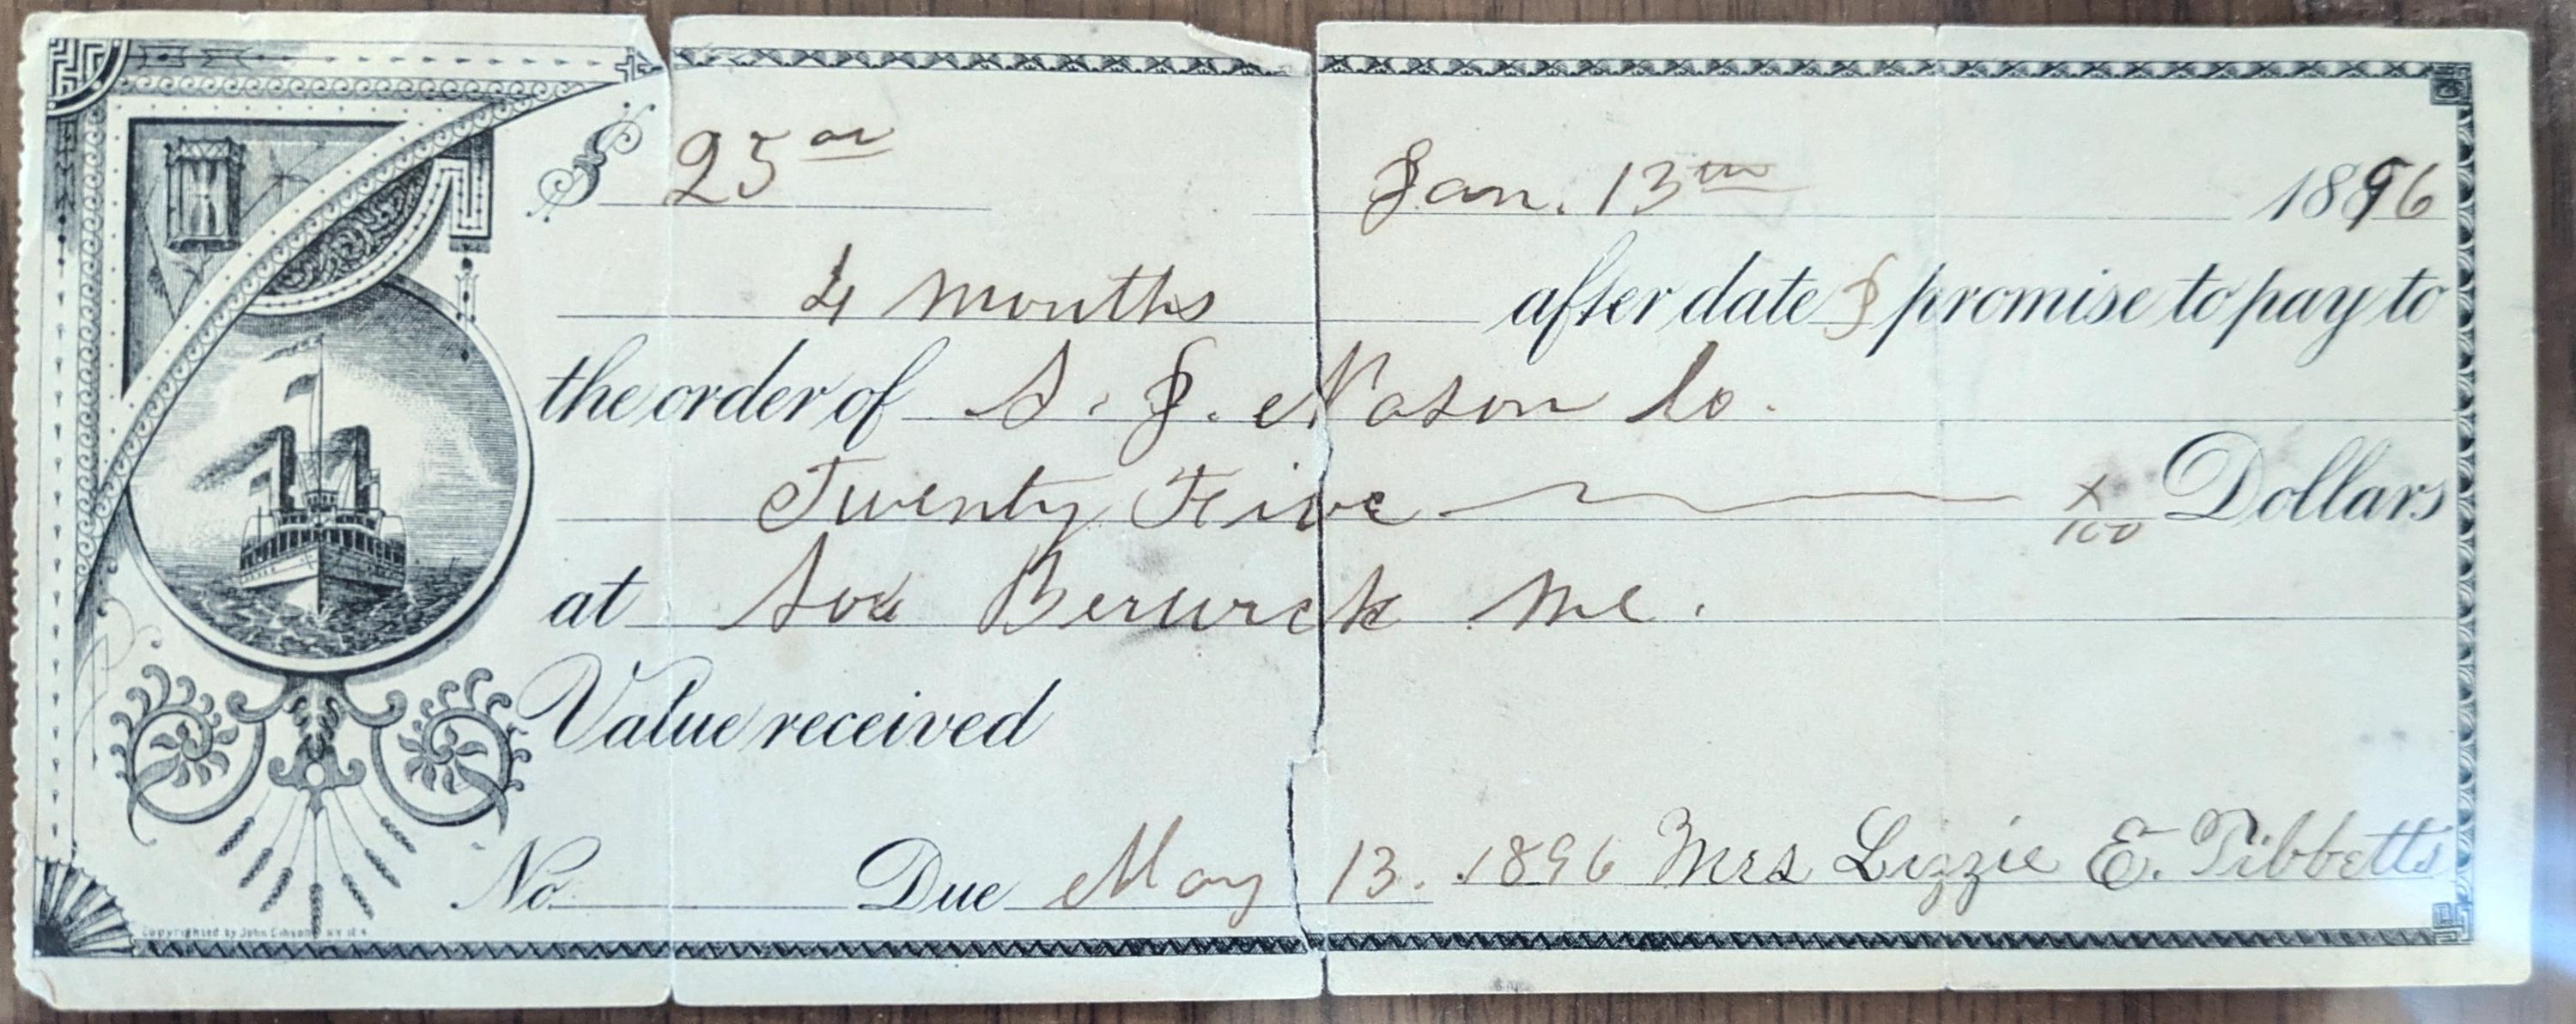 $ 25 00 Jan. 13th 1896
4 months after date I promise to pay to
the order of S. J. Nason Co.
Twenty Five x/100 Dollars
at So. Berwick Me.
Value received
No. Due May 13. 1896 Mrs Lizzie E. Tibbetts
Copyrighted by John Gibson N.Y.